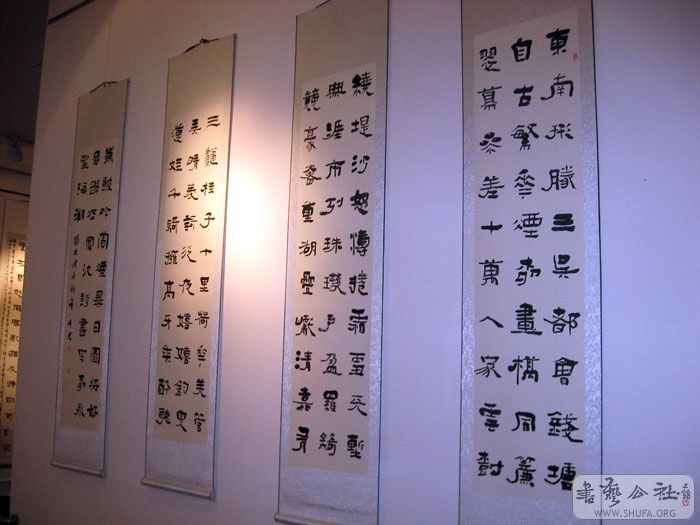 東南形勝三吳都會錢塘
自古繁華煙柳畫橋風簾
翠幕參差十萬人家雲樹
繞堤沙怒濤捲霜雪天塹
無涯市列珠璣戶盈羅綺
競豪奢重湖疊巘清嘉有
三龝桂子十里荷花羌管
弄晴菱歌泛夜嬉嬉釣叟
蓮娃千騎擁高牙乘醉聽
簫鼓吟賞煙異日圖將好
景歸去鳳池誇書柳永
望海潮
書藝公社
WWW.SHUFA.ORG